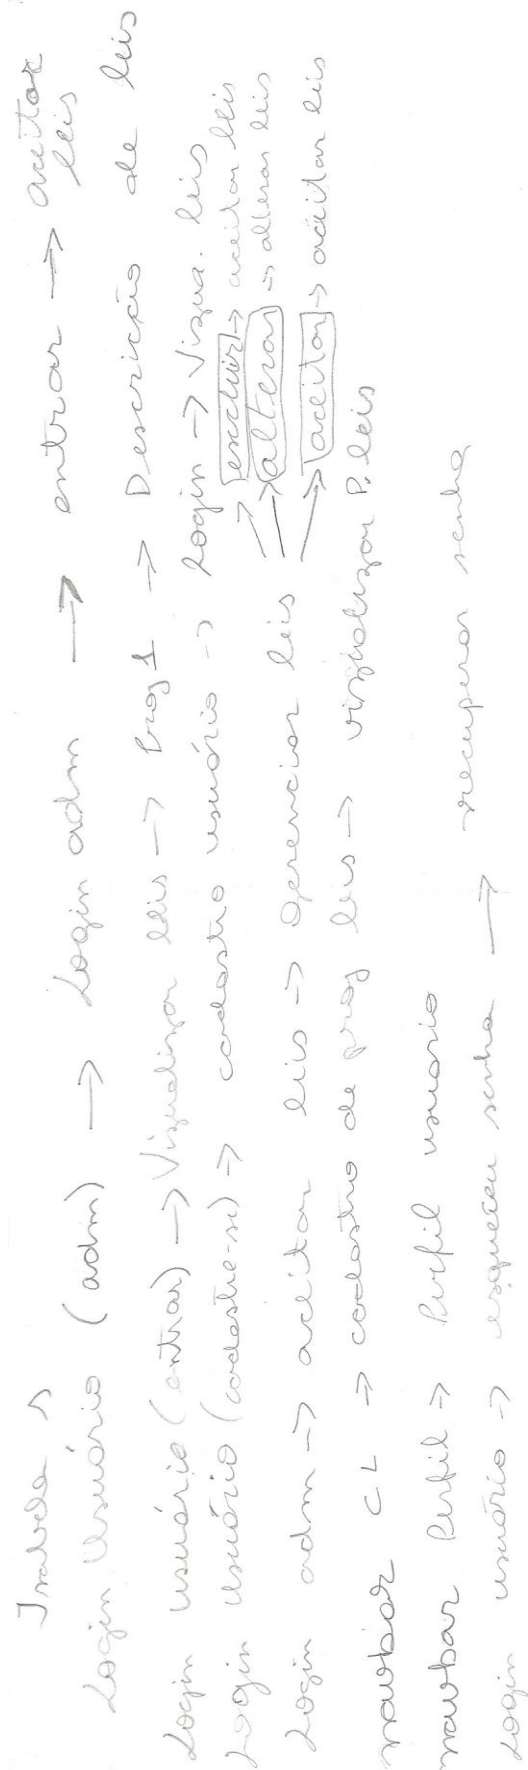 Isabela s
Login Usuário (adm) → Login adm → entrar → aceitar leis
Login usuário (entrar) → Vizualizar leis → Proj 1 → Descrição de leis
Login Usuário (cadastre-se) → cadastro usuário → Login → Vizua. leis
Login adm → aceitar leis → Gerenciar leis
→ excluir → aceitar leis
→ alterar → alterar leis
→ aceitar → aceitar leis
navbar CL → cadastro de proj leis → vizualizar P. leis
navbar Perfil → Perfil usuario
Login usuário → esqueceu senha → recuperar senha